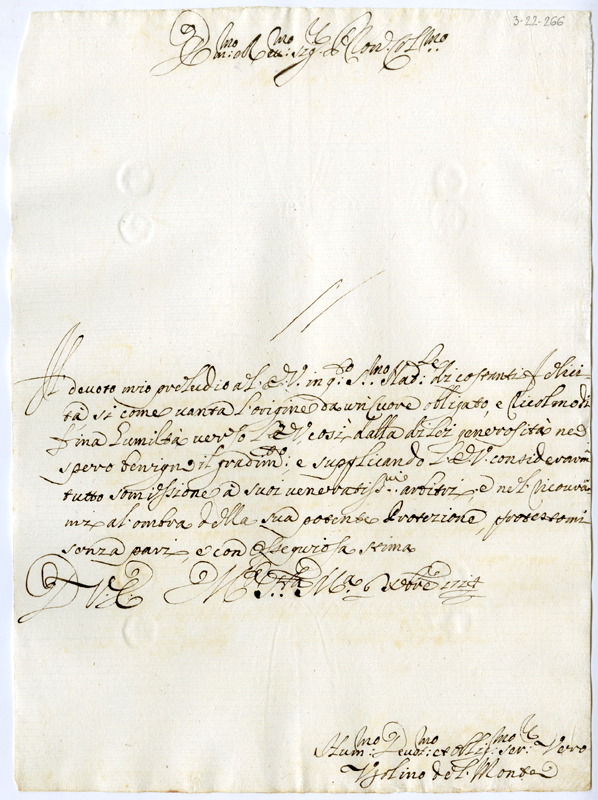 3-22-266
Em:mo e Reu:mo Sig:r e Pron: Col:mo
Il devoto mio preludio a l'E.V. in q.to S.mo Nat.le di costanti felici-
tà si come vanta l'origine da un Cuore obligato, e Ricolmo di
fina humiltà verso l'E.V. così dalla di lei generosità ne
spero benigno il gradim:to e supplicando l'E.V. considerarmi
tutto somissione à suoi veneratiss:mi arbitri, e nel ricourar
mi al ombra della sua potente Protezione, protestomi
senza pari, e con ossequiosa stima
D. V. E.
Xbre 1724
Hum:mo Deuot:mo et obblig:mo ser:r Vero
Vgolino del Monte